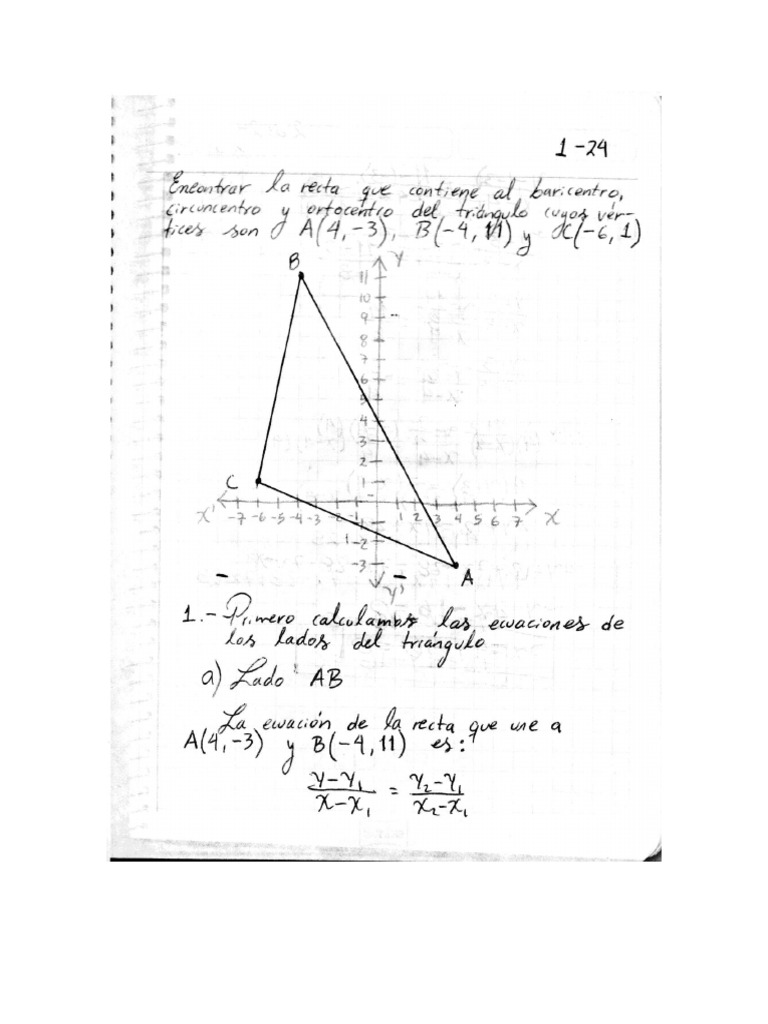 1-24
Encontrar la recta que contiene al baricentro,
circuncentro y ortocentro del triángulo cuyos vér-
tices son A(4,-3), B(-4,11) y C(-6,1)
B
Y
11
10
9
8
7
6
5
4
3
2
C
1
X' -7 -6 -5 -4 -3 -1 1 2 3 4 5 6 7 X
-2
-3
A
Y'
1.- Primero calculamos las ecuaciones de
los lados del triángulo
a) Lado AB
La ecuación de la recta que une a
A(4,-3) y B(-4,11) es:
y-y₁ / x-x₁ = y₂-y₁ / x₂-x₁